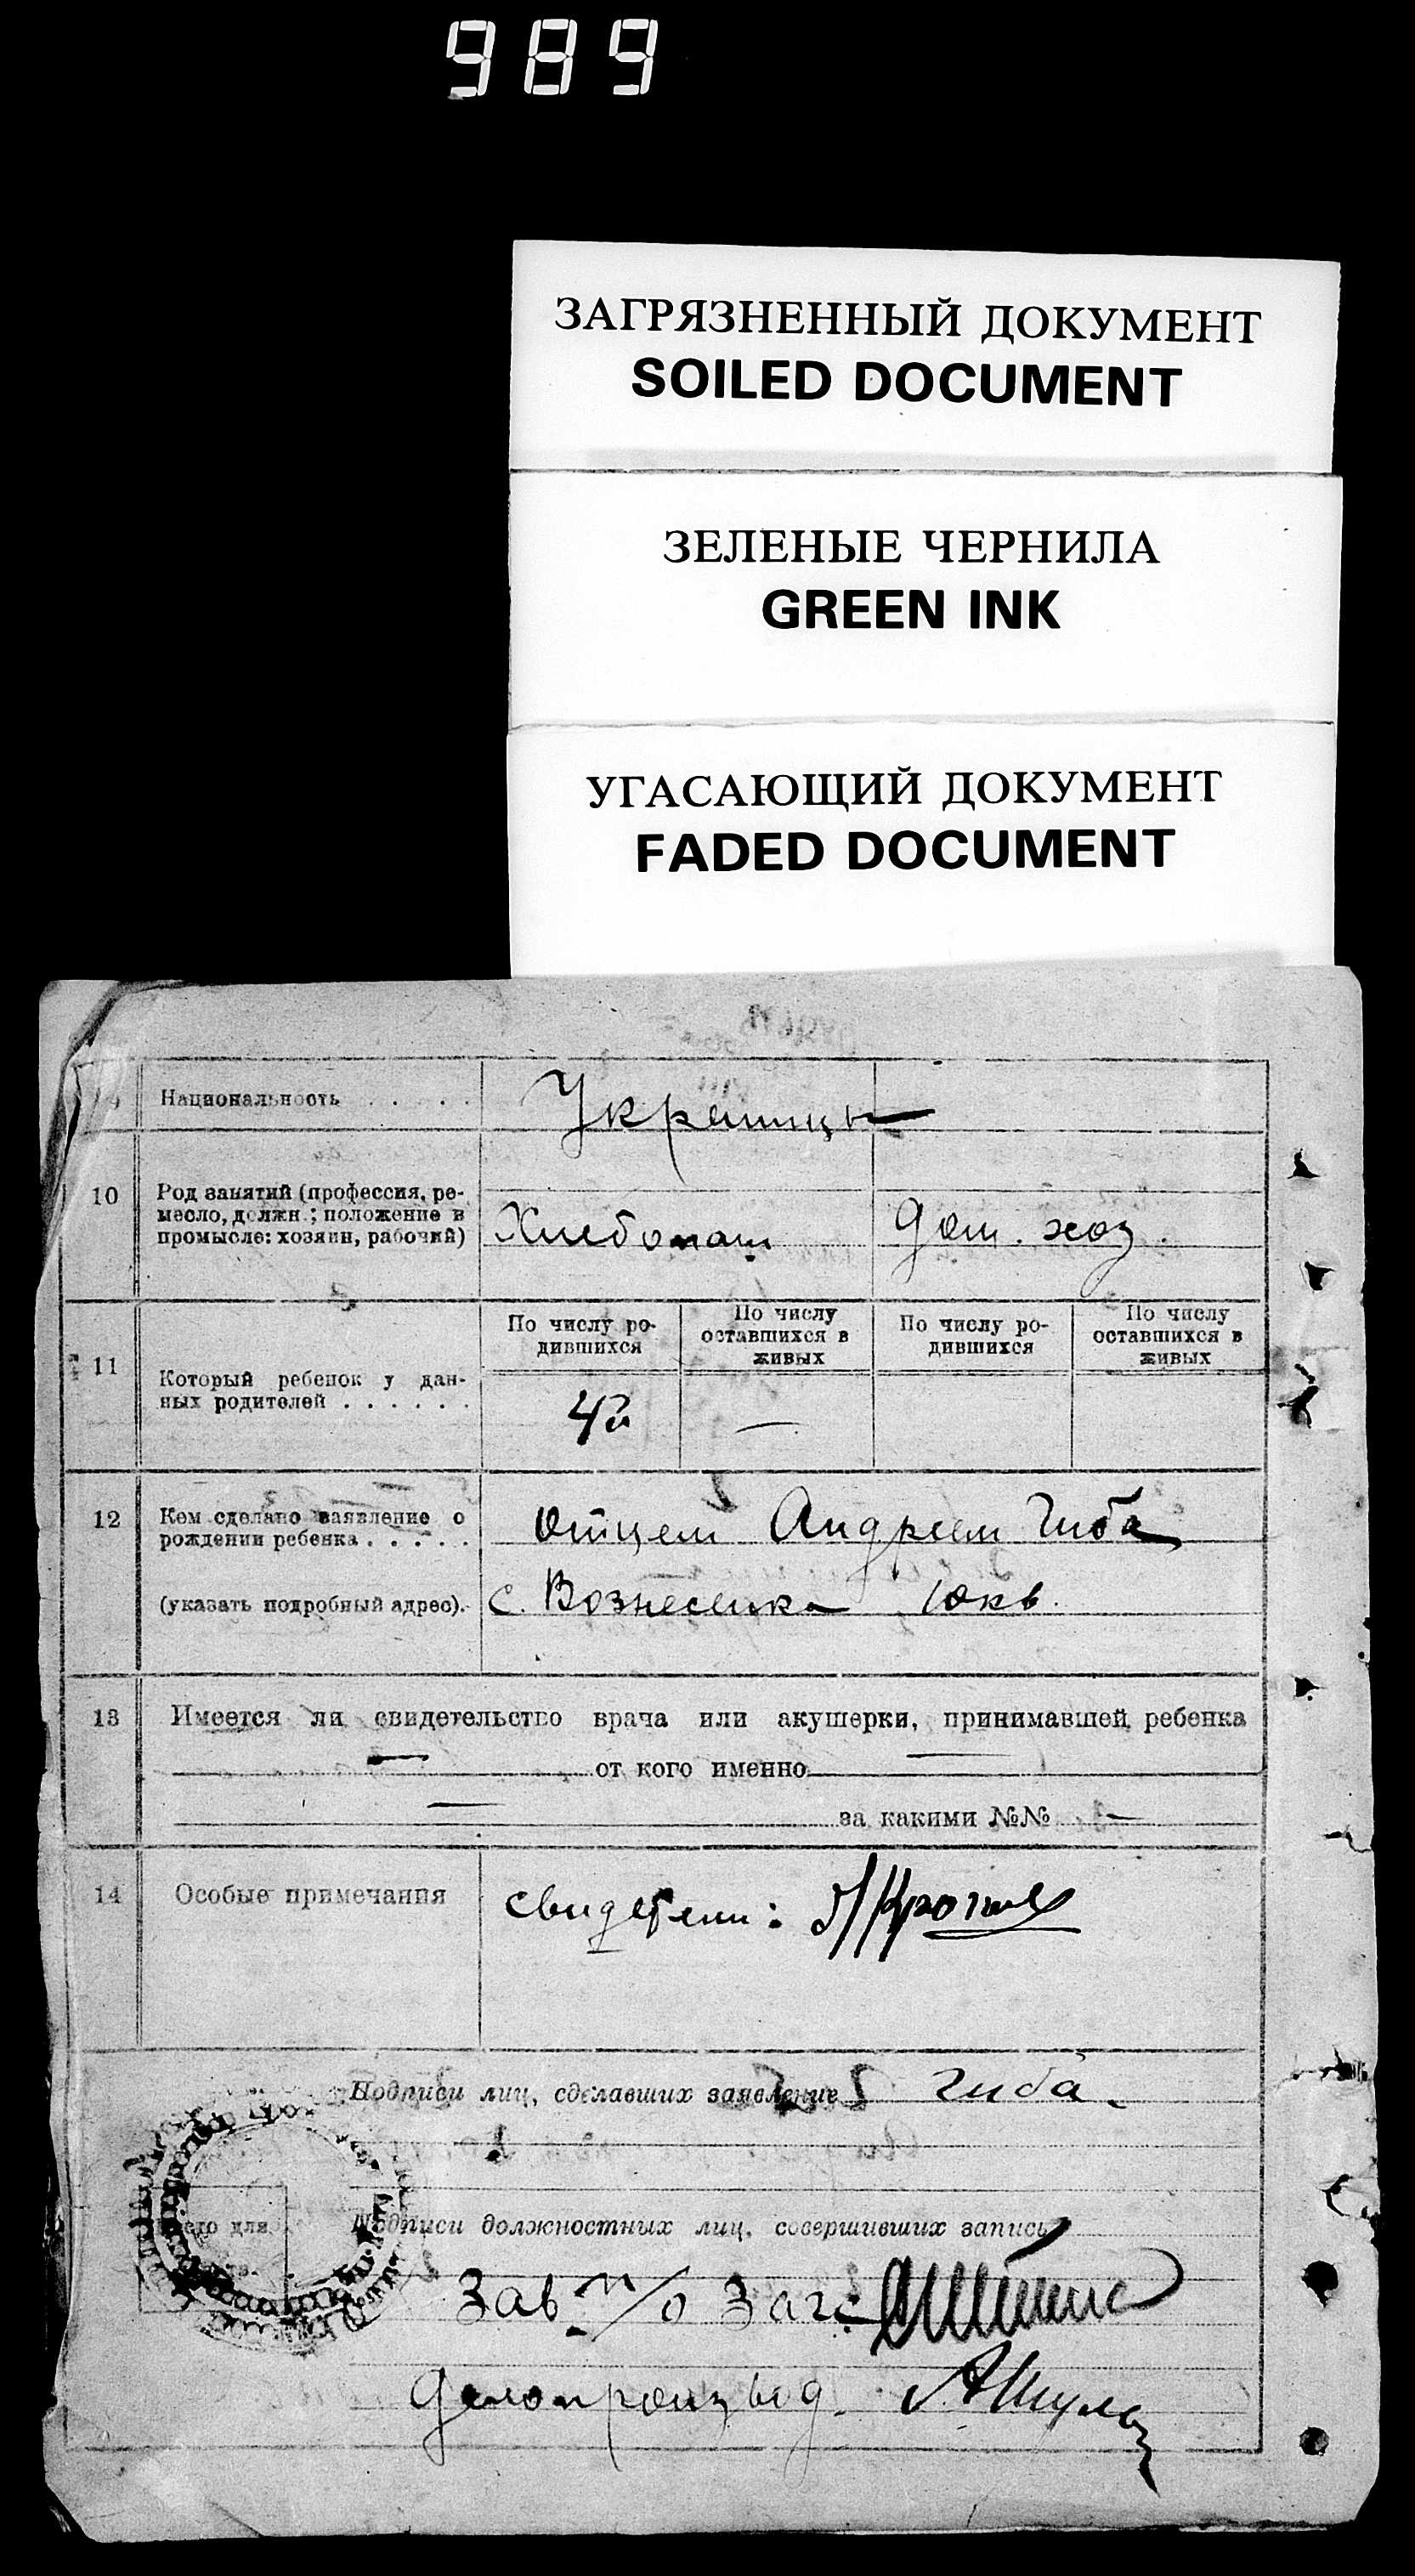 989
ЗАГРЯЗНЕННЫЙ ДОКУМЕНТ
SOILED DOCUMENT
ЗЕЛЕНЫЕ ЧЕРНИЛА
GREEN INK
УГАСАЮЩИЙ ДОКУМЕНТ
FADED DOCUMENT
9 Национальность . . . . Украинцы
10 Род занятий (профессия, ре-
месло, должн.; положение в
промысле: хозяин, рабочий)
Хлебопаш Дом. хоз.
11 Который ребенок у дан-
ных родителей . . . . . .
По числу ро-
дившихся
По числу
оставшихся в
живых
По числу ро-
дившихся
По числу
оставшихся в
живых
4й —
12 Кем сделано заявление о
рождении ребенка . . . . .
(указать подробный адрес).
Отцем Андреем Гиба
с. Вознесенка
13 Имеется ли свидетельство врача или акушерки, принимавшей ребенка
— от кого именно —
— за какими №№ —
14 Особые примечания свидетели:
Подписи лиц, сделавших заявление Гиба
Подписи должностных лиц, совершивших запись
Место для
Зав. п/о Загс
Делопроизвод.